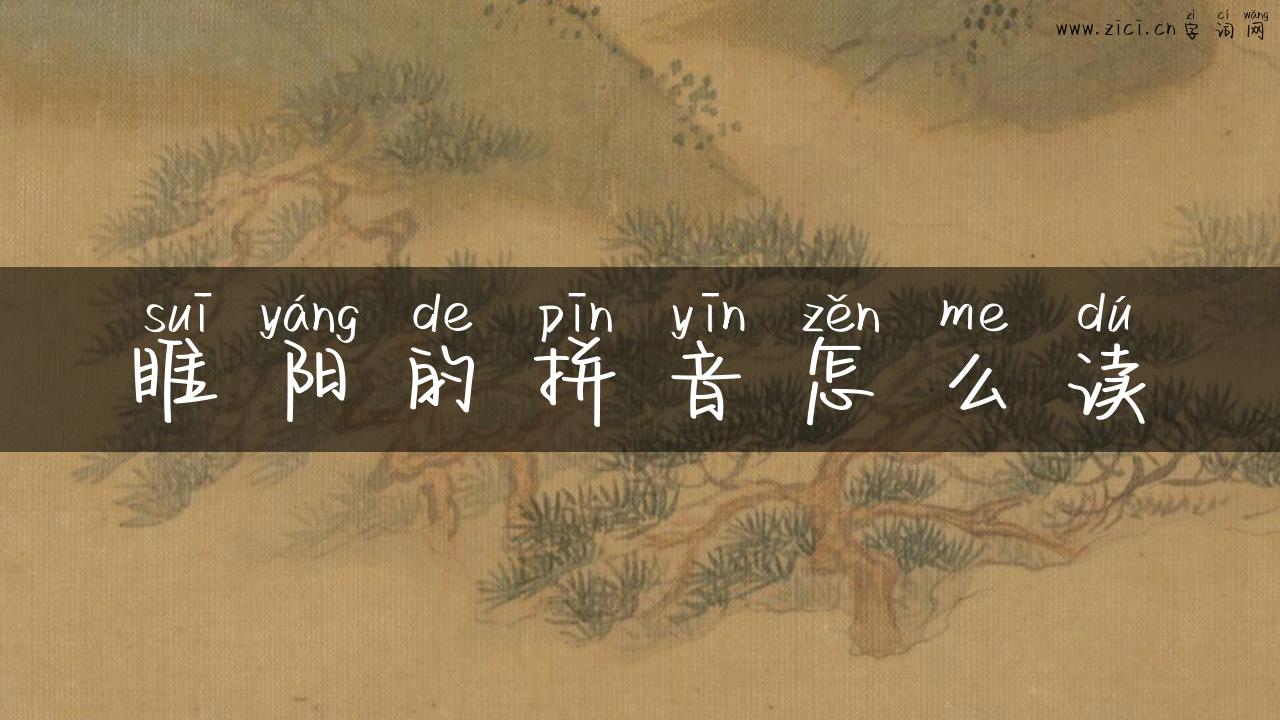 zì cí wǎng
www.zici.cn 字词网
suī yáng de pīn yīn zěn me dú
睢阳的拼音怎么读